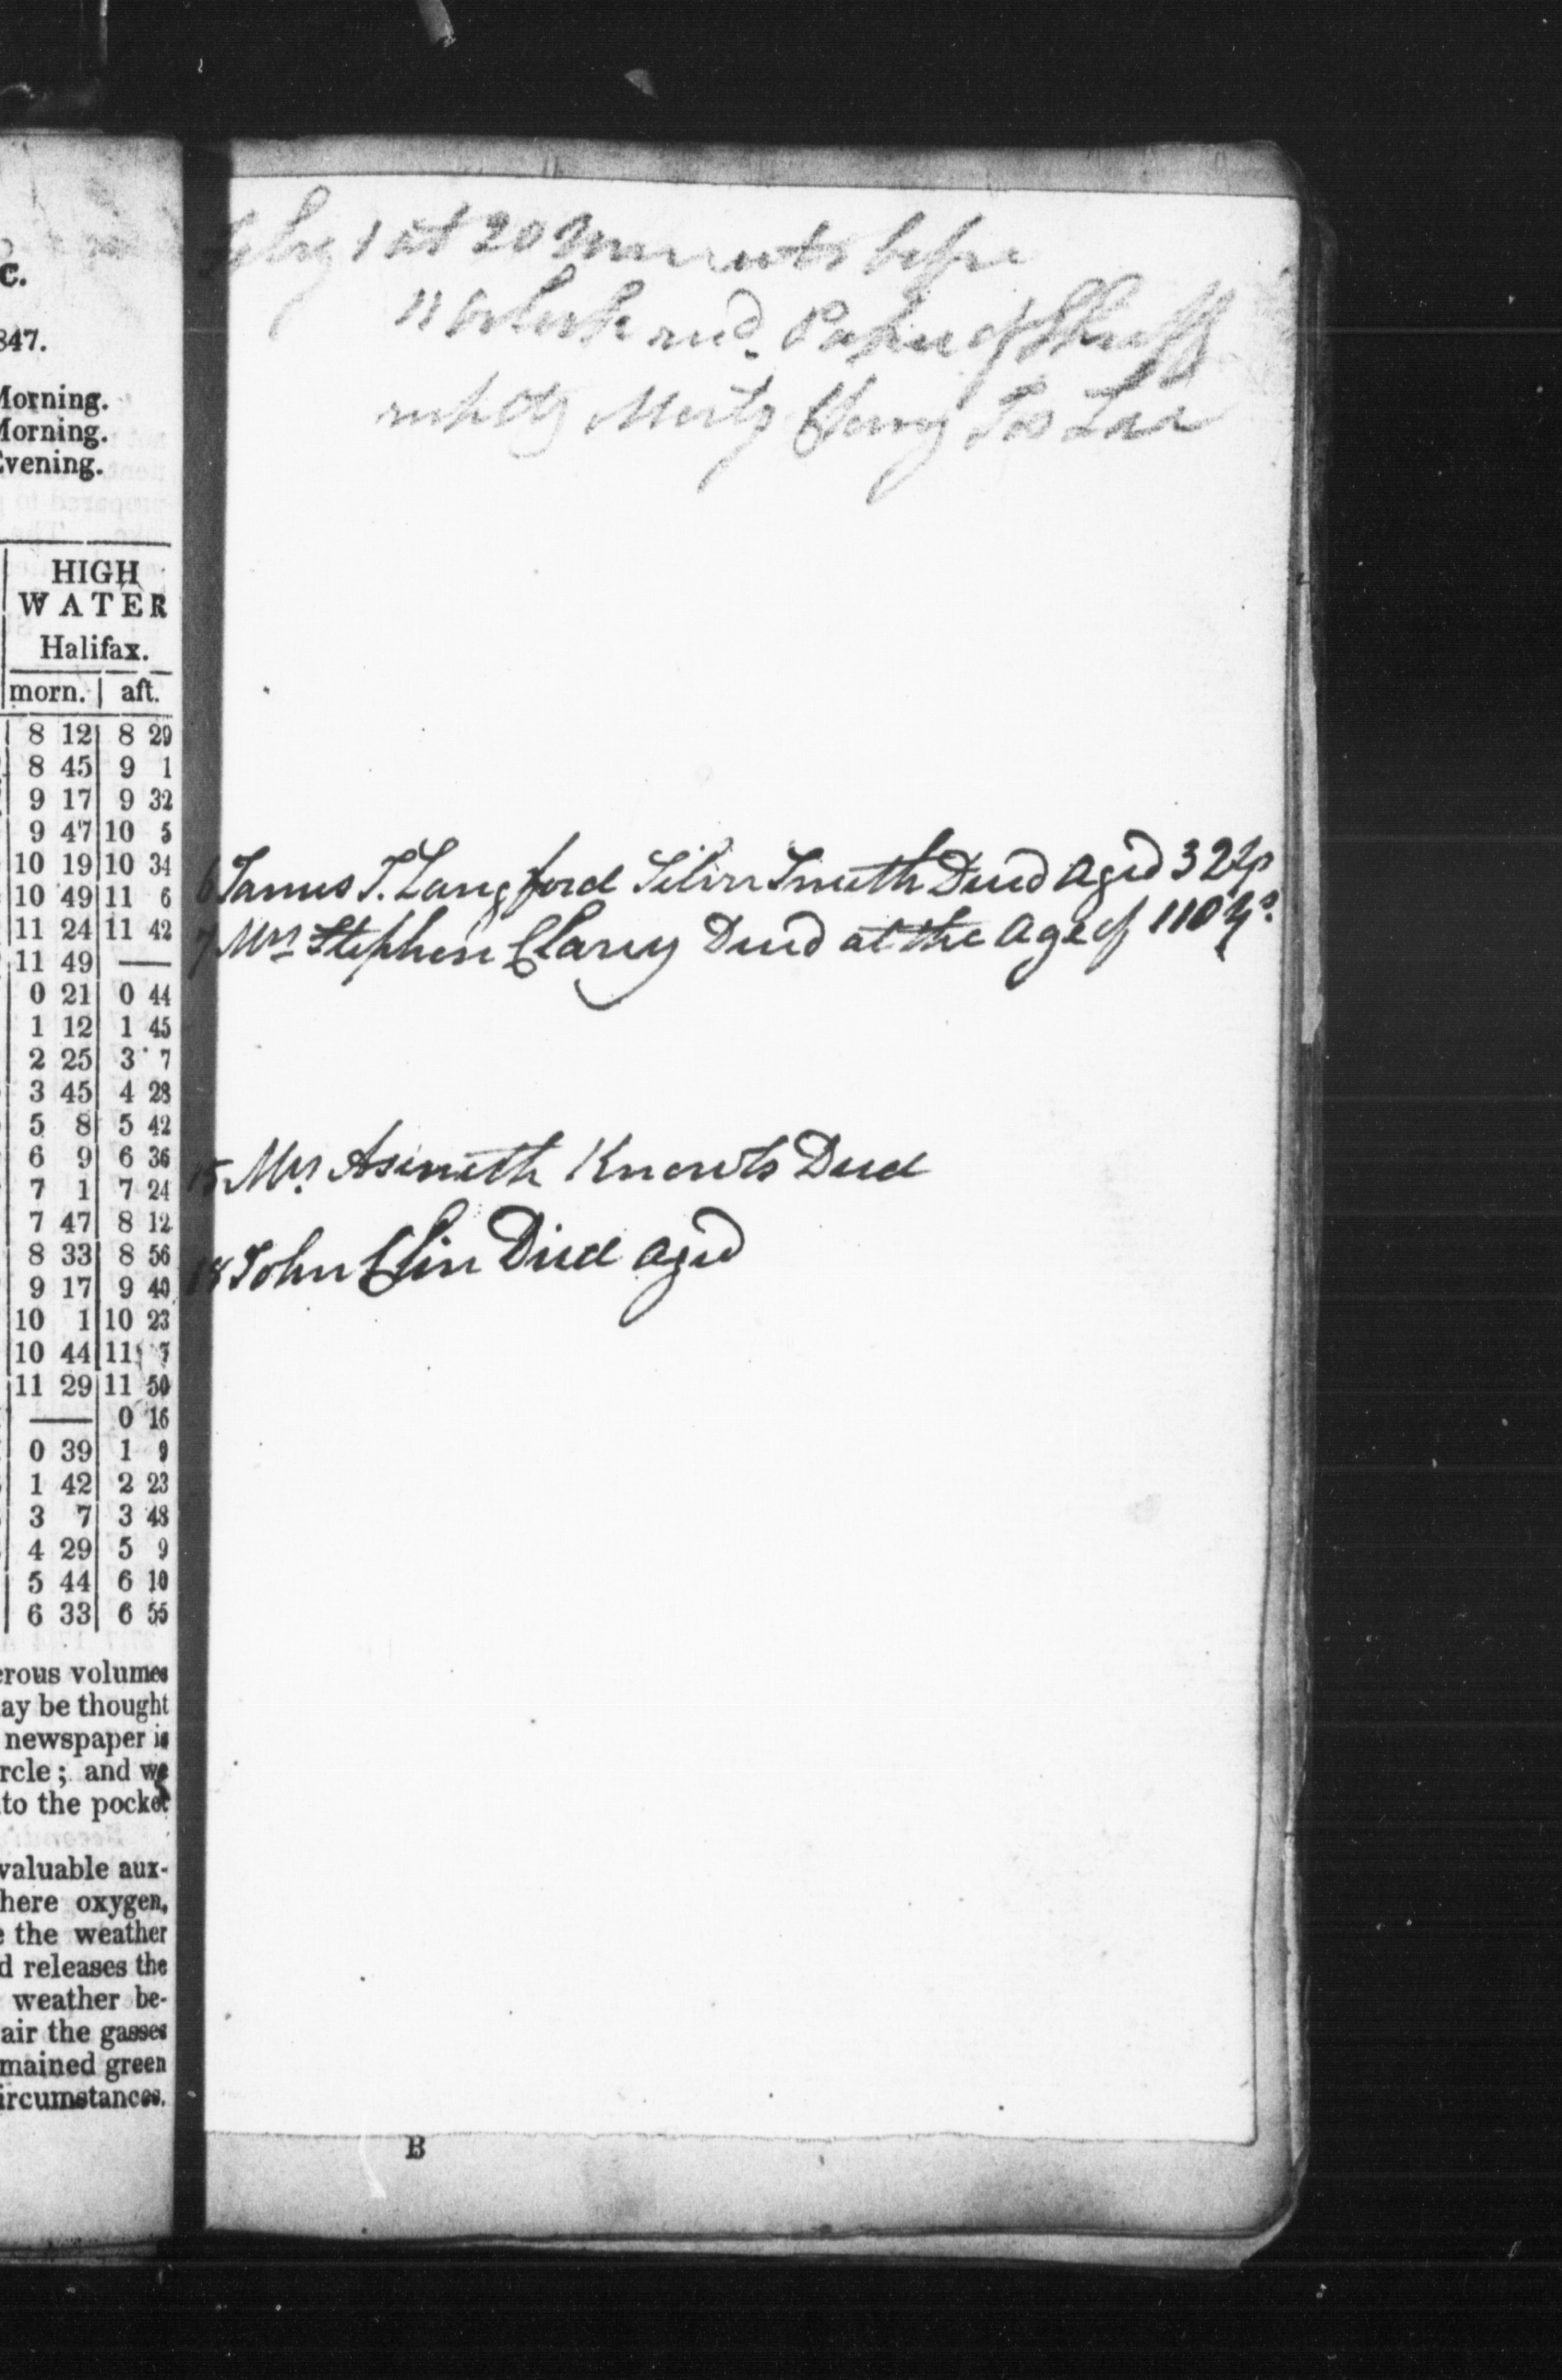 C.
847.
Morning.
Morning.
Evening.
HIGH
WATER
Halifax.
morn. | aft.
8 12 8 29
8 45 9 1
9 17 9 32
9 47 10 5
10 19 10 34
10 49 11 6
11 24 11 42
11 49 —
0 21 0 44
1 12 1 45
2 25 3 7
3 45 4 28
5 8 5 42
6 9 6 36
7 1 7 24
7 47 8 12
8 33 8 56
9 17 9 40
10 1 10 23
10 44 11 7
11 29 11 50
— 0 16
0 39 1 9
1 42 2 23
3 7 3 48
4 29 5 9
5 44 6 10
6 33 6 55
erous volumes
ay be thought
newspaper is
rcle; and we
to the pocket
valuable aux-
here oxygen,
e the weather
d releases the
weather be-
air the gasses
mained green
ircumstances.
1 at 20 before
11 of
6 James T. Langford Silver Smith Died aged 32
7 Mrs Stephen Clary Died at the age of 110 Ys.
15 Mrs. Asenath Knowts Died
18 John Clin Died aged
B